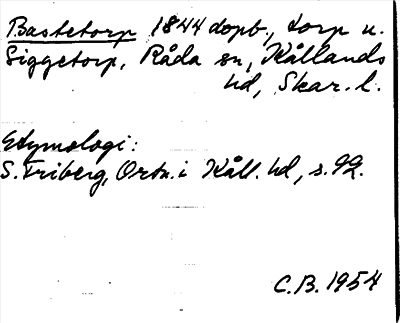 Bastetorp 1844 dopb., torp u.
Siggetorp, Råda sn, Kållands
hd, Skar. l.
Etymologi:
S. Friberg, Ortn. i Kåll. hd, s. 92.
C.B. 1954